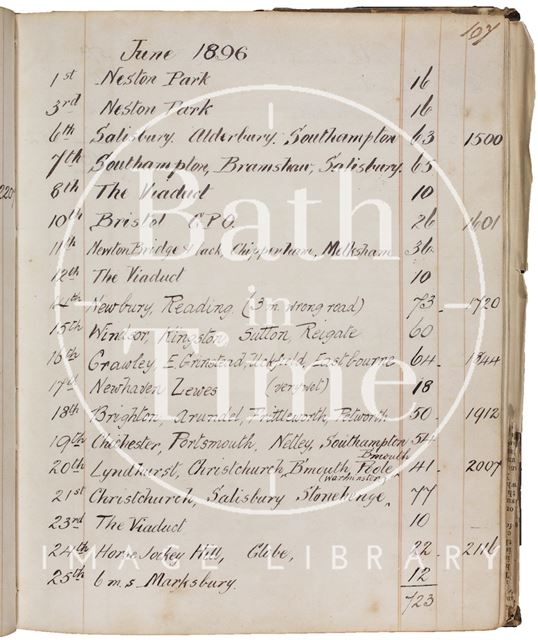 107
June 1896
1st Neston Park 16
3rd Neston Park 16
6th Salisbury. Alderbury. Southampton 63 1500
7th Southampton, Bramshaw, Salisbury. 65
220
8th The Viaduct 10
10th Bristol G.P.O. 26 1601
11th Newton Bridge & back, Chippenham, Melksham 36
12th The Viaduct 10
14th Newbury, Reading. (3 m. wrong road) 73 - 1720
15th Windsor, Kingston, Sutton, Reigate 60
16th Crawley, E. Grinstead, Uckfield, Eastbourne 64 - 1844
17th Newhaven Lewes (very wet) 18
18th Brighton, Arundel, Fittleworth, Petworth 50 - 1912
19th Chichester, Portsmouth, Netley, Southampton 54
B'mouth
20th Lyndhurst, Christchurch, B'mouth, Poole 41 - 2007
(Warminster)
21st Christchurch, Salisbury Stonehenge, 77
23rd The Viaduct 10
24th Horse Jockey Hill, Globe, 22 - 2116
25th 6 m.s. Marksbury. 12
723
Bath
in
Time
IMAGE LIBRARY